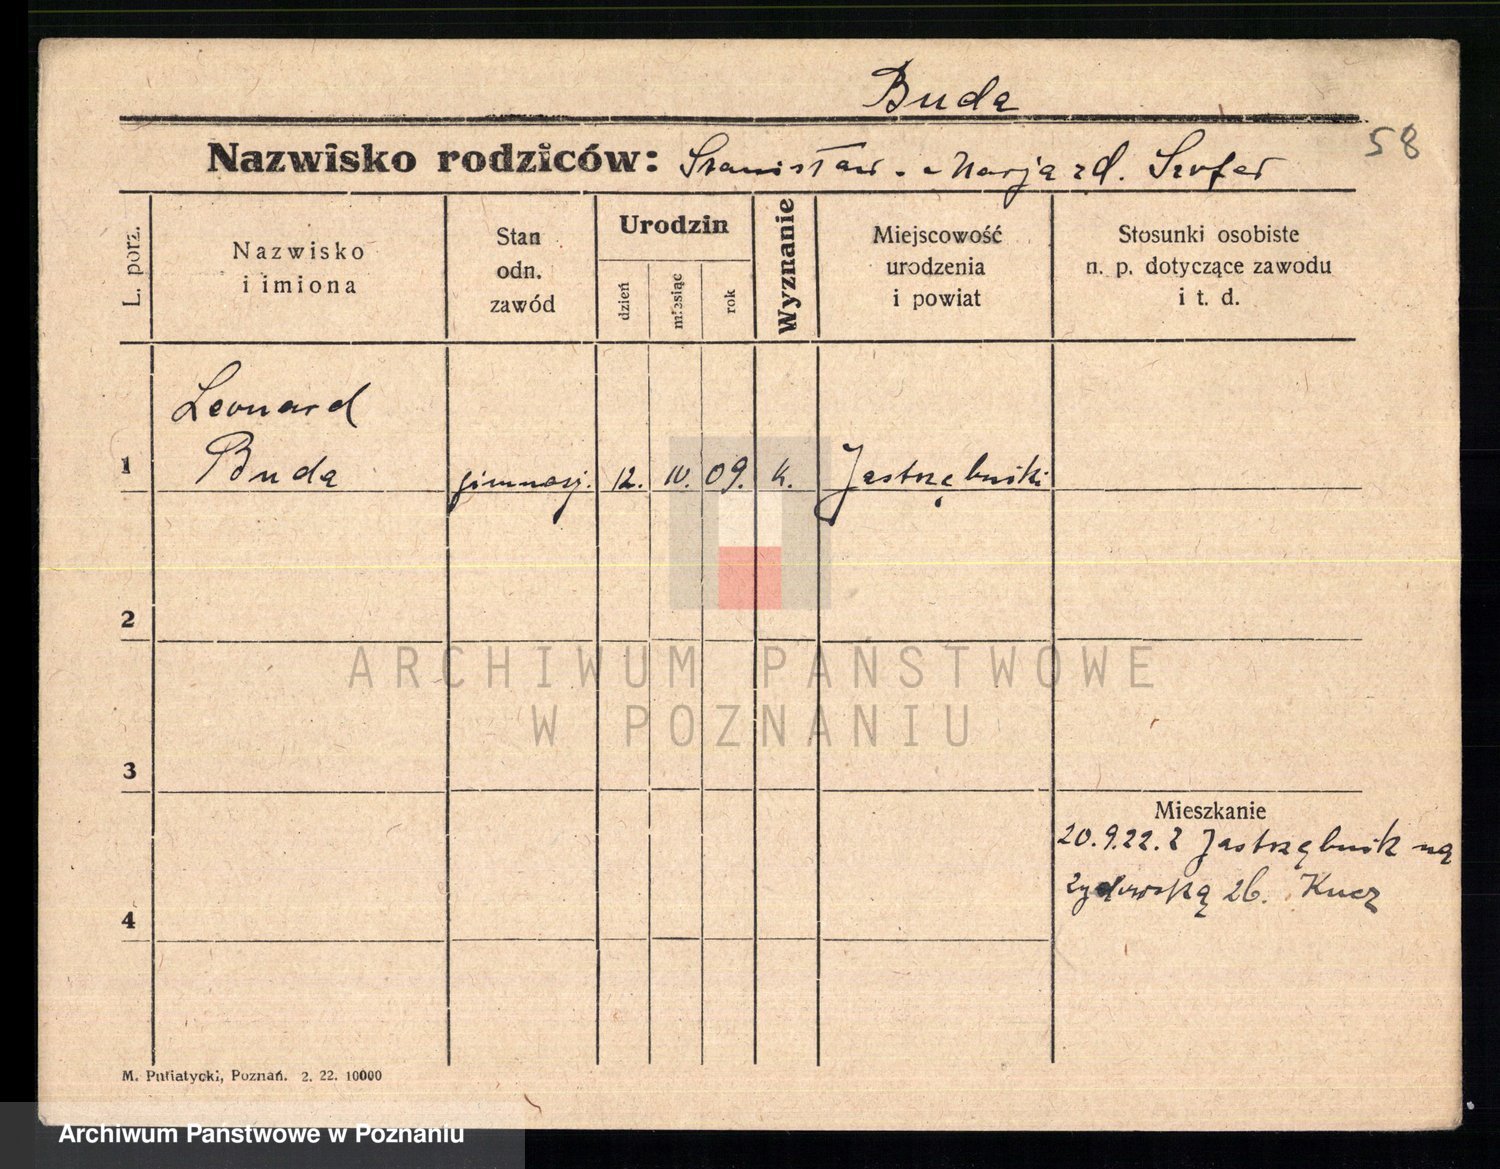 Buda
58
Nazwisko rodziców: Stanisław. - Marja zd. Szofer
L. porz.
Nazwisko
i imiona
Stan
odn.
zawód
Urodzin
dzień
miesiąc
rok
Wyznanie
Miejscowość
urodzenia
i powiat
Stosunki osobiste
n. p. dotyczące zawodu
i t. d.
Leonard
1 Buda gimnazj. 12. IV. 09. k. Jastrzębniki
2
3
Mieszkanie
20.9.22. z Jastrzębnik na
Żydowską 26. Kucz
4
M. Putiatycki, Poznań. 2. 22. 10000
ARCHIWUM PAŃSTWOWE
W POZNANIU
Archiwum Państwowe w Poznaniu